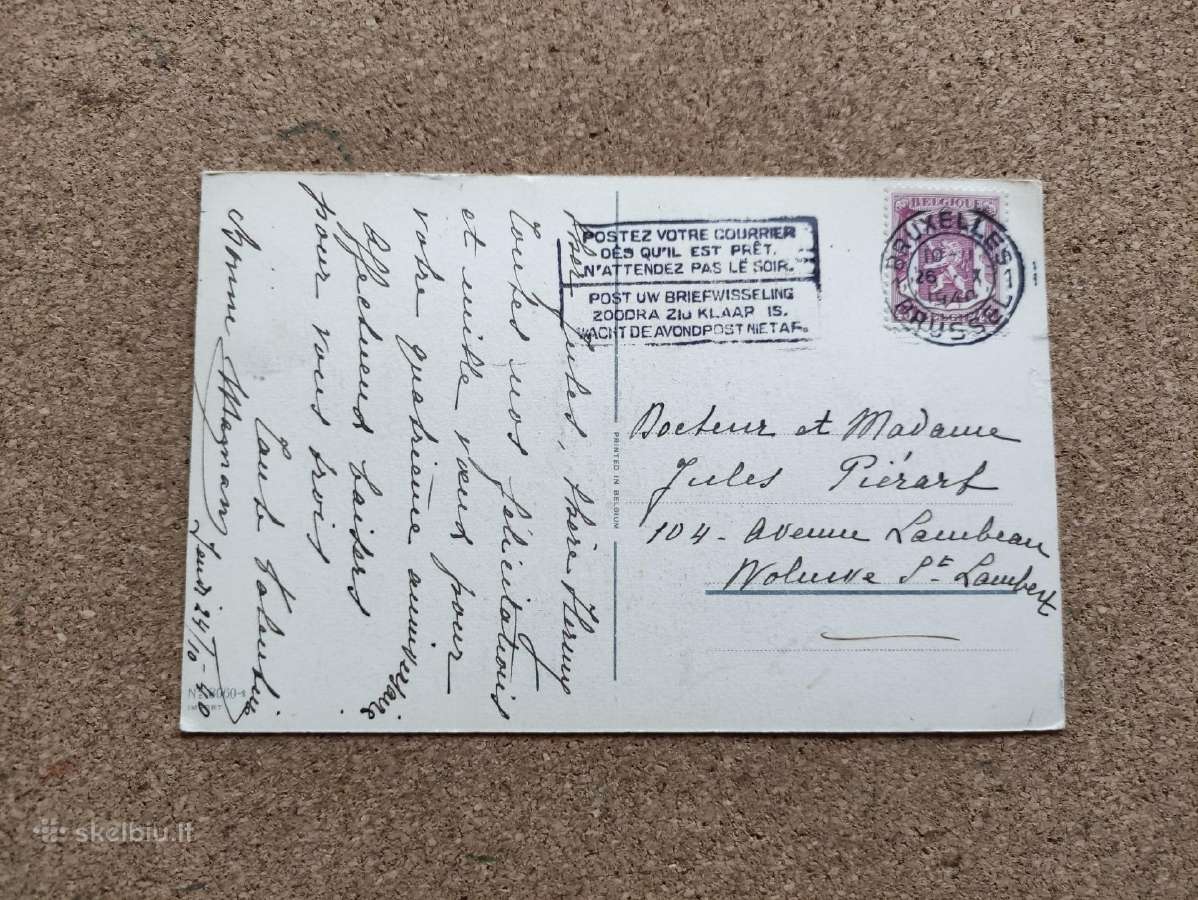 POSTEZ VOTRE COURRIER
DÈS QU'IL EST PRÊT.
N'ATTENDEZ PAS LE SOIR.
POST UW BRIEFWISSELING
ZOODRA ZIJ KLAAR IS.
WACHT DE AVONDPOST NIET AF.
BELGIQUE
BRUXELLES 1
10
26 X
1940
BRUSSEL 1
Cher Jules, chère
Toutes nos félicitations
et mille vœux pour
votre quatrième anniversaire
Affectueux baisers
pour vous trois
Tante
Bonne Maman
Jeudi 24/10-40
PRINTED IN BELGIUM
Docteur et Madame
Jules Piérart
104 - Avenue Lambeau
Woluwe St Lambert
IMPORT
skelbiu.lt